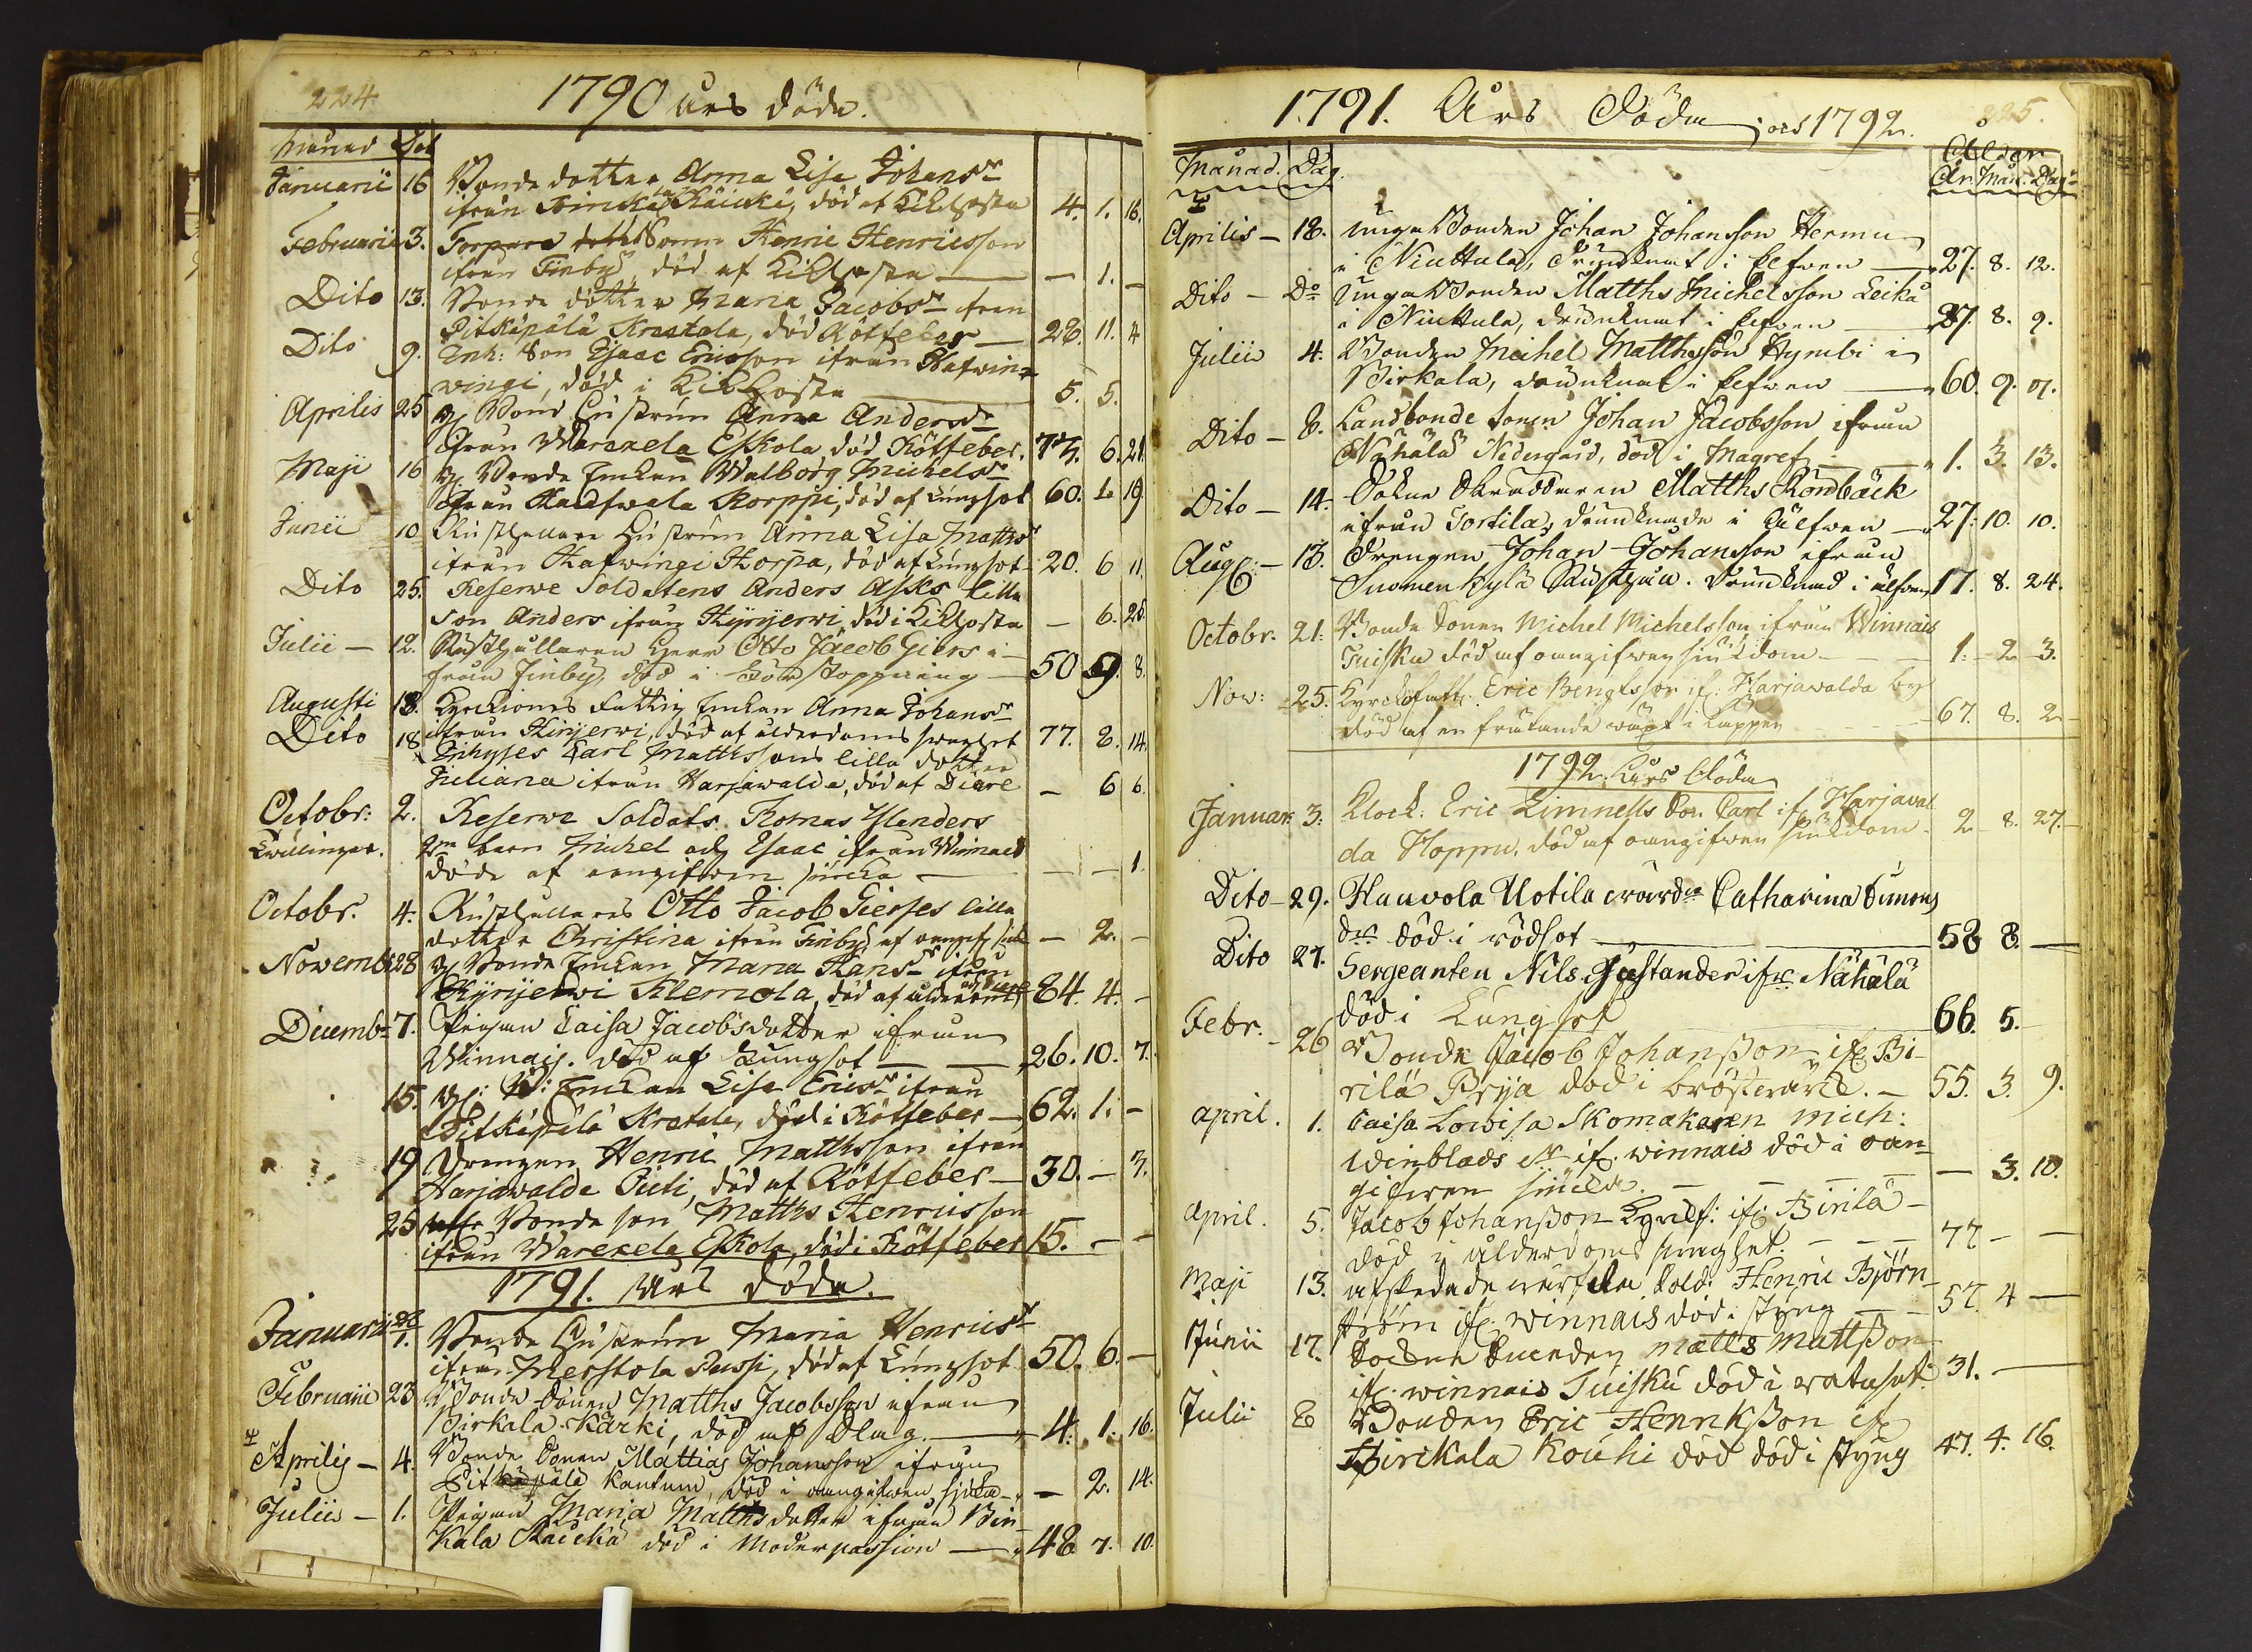 224
1790 års döde.
Månad Dat
Januarii 16 Bonde dotter Anna Lisa Johansdr
ifrån Birkala Räiuki, död af Kikhosta 4. 1. 16.
Februarii 3. Torpare Sonen Henric Henricsson
ifrån Finby, död af Kikhosta — 1. —
Dito 13. Bonde dotter Maria Jacobsdr ifrån
Pitkäpälä Kratala, död Rötfeber 28. 11. 4
Dito 9. Enk: Son Isaac Ericsson ifrån Hafwin-
wingi, död i Kikhosta 5. 5.
Aprilis 25 Bond Hustrun Anna Andersdr
ifrån Warekela Eskola död Rötfeber. 77. 6. 21.
Maji 16 Bonde Enkan Walborg Michelsdr
ifrån Korppi, död af Lungsot 60. 19
Junii 10 Rusthållare Hustrun Anna Lisa Mattsdr
ifrån Hafwingi Korpa, död af Lungsot 20. 6 11.
Dito 25. Reserve Soldatens Anders Asks lilla
Son Anders ifrån Kyrijerwi, död i Kikhosta — 6. 25
Julii — 12. Rusthållaren Herr Otto Jacob Giers i-
från Finby, död i förstoppning 50 9. 8.
Augusti 18. Kyrckiones Fattig Enkan Anna Johansdr
ifrån Kirijerwi, död af ålderdoms swaghet 77. 8. 14.
Dito 18 Inhyses Carl Matthssons lilla dotter
Juliana ifrån Harjawalda, död af Diäre — 6 6.
Octobr: 2. Reserve Soldats Thomas Flenders
Twillingar. 2ne barn Michel och Esaac ifrån Winnais
döde af oangifwen siucka — — 1.
Octobr. 4. Rusthållares Otto Jacob Gierses lilla
dotter Christina ifrån Finby, af oangif. siuk — 2. —
Novembr 28 Bonde Enkan Maria Hansdr ifrån
Kyrijerwi Klemola, död af ålderdom 84. 4. —
Decembr 7. Pigan Caisa Jacobsdotter ifrån
Winnais. död af Lungsot 26. 10. 7.
15. Enkan Lisa Ericsdr ifrån
Pitkäpälä Kratala, död i Rötfeber 62. 1. —
19 Drengen Henric Matthsson ifrån
Harjawalda Juti, död af Rötfeber 30. — 7.
25 Bonde son Matths Henricsson
ifrån Warekela Eskola, död i Rötfeber 15. — —
1791. års döde.
Januarii 1. Bonde Hustrun Maria Henricsdr
ifrån Merstola Pussi, död af Lungsot 50. 6. —
Februarii 23 Bonde Sonen Matths Jacobsson ifrån
Birkala Kärki, död af Slag. 4. 1. 16.
Aprilis — 4. Bonde Sonen Mattias Johansson ifrån
Pitkäpälä Kantund, död i oangifwen sjuka — 2. 14.
Julii — 1. Pigan Maria Matths dotter ifrån Bir-
kala Raucka död i Moderpassion 48 7. 10.
1791. Års Döda och 1792. 225.
Månad. Dag. Ålder
År. Mån. Dag.
Aprilis — 18. unga Bonden Johan Johansson Hermu
i Niuttula, Drunknat i Elfwen 27. 8. 12.
Dito — Do Unga Bonden Matths Michelsson Leikä
i Niuttula, drunknat i Elfwen 27. 8. 9.
Julii 4. Bonden Michel Matthsson Hyrubi i
Birkala, drunknat i Elfwen 60. 9. 07.
Dito — 8. Landbonde Sonen Johan Jacobsson ifrån
Nähälä Nedergård, död i Magref 1. 3. 13.
Dito — 14. Sokne Skräddaren Matths Rönbäck
ifrån Tortila, drunknade i Älfwen 27. 10. 10.
Aug: — 13. Drengen Johan Johansson ifrån
Suomenkylä Rusthåll. Drunknad i älfwen 17. 8. 24.
Octobr. 21. Bonde Sonen Michel Michelsson ifrån Winnais
Tuisku död af oangifwen siukdom 1. 2 3.
Nov: 25. Kyrckofatt: Eric Bengtsson if: Harjawalda by
död af en frätande wäxt i läppen 67. 8. 2
1792. Års Döda
Januar. 3. Klock: Eric Limnells Son Carl if. Harjaval
da Hoppu, död af oangifwen siukdom. 2 8. 27.
Dito — 29. Hauvola Uotila Catharina Simons
dr död i rödsot 58 8. —
Dito 27. Sergeanten Nils Gustander ifr. Nähälä
död i Lungsot 66. 5.
Febr. 26 Bonde Jacob Johansson if. Bi-
rilä Prijä död i bröstwärck. 55. 3. 9.
april. 1. Caisa Lowisa Skomakaren Mich:
Winblads dr if. winnais död i oan-
gifwen siuckd. — 3. 10.
April. 5. Jacob Johansson Kyrckf: if. Birilä
död i ålderdoms swaghet. 77 — —
Maji 13. afskedade Sold: Henric Björn-
ström if. winnais död i styng 57. 4 —
Junii 17. Socknen Matts Mattsson
if. winnais Tuisku död i watusot 31. —
Julii 8 Bonden Eric Henriksson if
Pirckala Kouhi död död i styng 47. 4. 16.